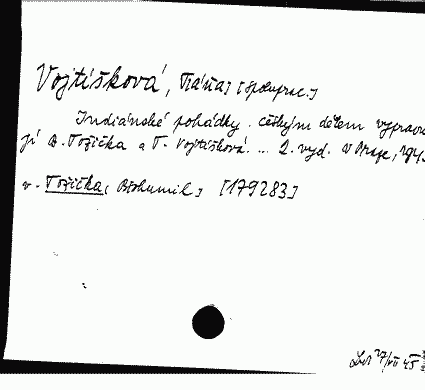 Vojtíšková, Táňa [spoluprac.]
Indiánské pohádky. českým dětem vypravu
jí B. Tožička a T. Vojtíšková. ... 2. vyd. V Praze, 194
v. Tožička, Bohumil] [179283]